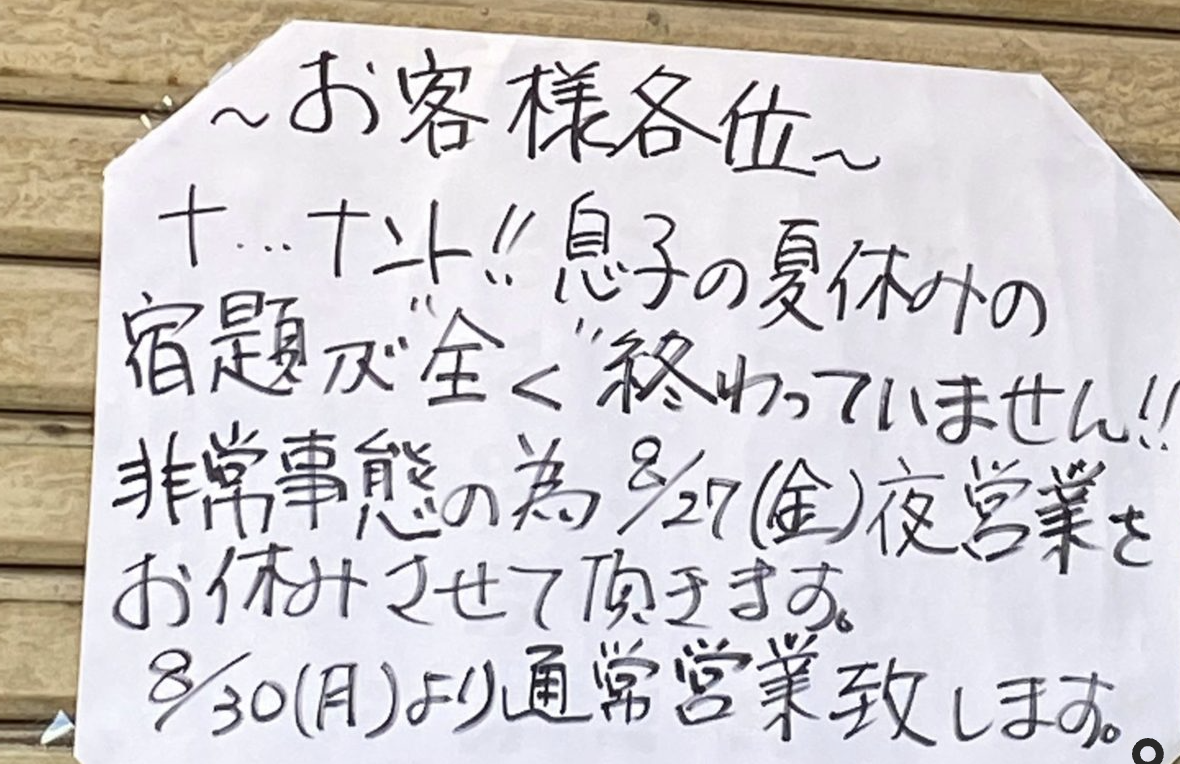 ～お客様各位～
ナ…ナント!!息子の夏休みの
宿題が"全く"終わっていません!!
非常事態の為8/27(金)夜営業を
お休みさせて頂きます。
8/30(月)より通常営業致します。